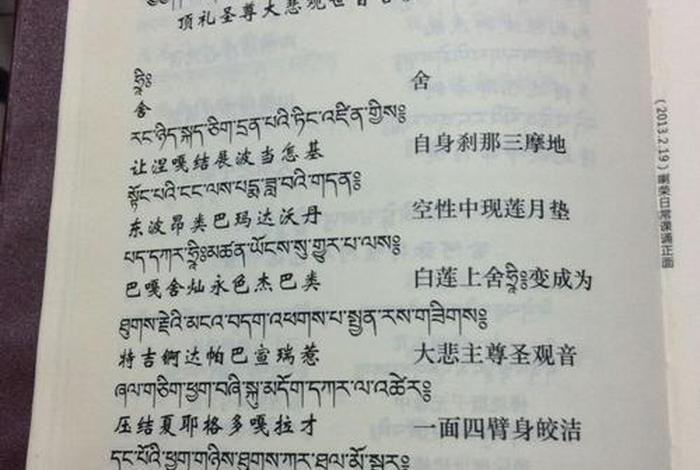 顶礼圣尊大悲观世音
ཧྲཱིཿ 舍
舍
རང་ཉིད་སྐད་ཅིག་དྲན་པའི་ཏིང་འཛིན་གྱིས༔
让涅嘎结展波当怎基 自身刹那三摩地
སྟོང་པའི་ངང་ལས་པདྨ་ཟླ་བའི་གདན༔
东波昂类巴玛达沃丹 空性中现莲月垫
པད་དཀར་ཧྲཱིཿམཚན་ཡོངས་སུ་གྱུར་པ་ལས༔
巴嘎舍灿永色杰巴类 白莲上舍ཧྲཱིཿ变成为
ཐུགས་རྗེའི་མངའ་བདག་འཕགས་པ་སྤྱན་རས་གཟིགས༔
特吉锕达帕巴宣瑞惹 大悲主尊圣观音
ཞལ་གཅིག་ཕྱག་བཞི་སྐུ་མདོག་དཀར་ལ་འཚེར༔
压结夏耶格多嘎拉才 一面四臂身皎洁
དང་པོའི་ཕྱག་གཉིས་ཐུགས་ཀར་ཐལ་མོ་སྦྱར༔
(2013.2.19)喇荣日常课诵正面